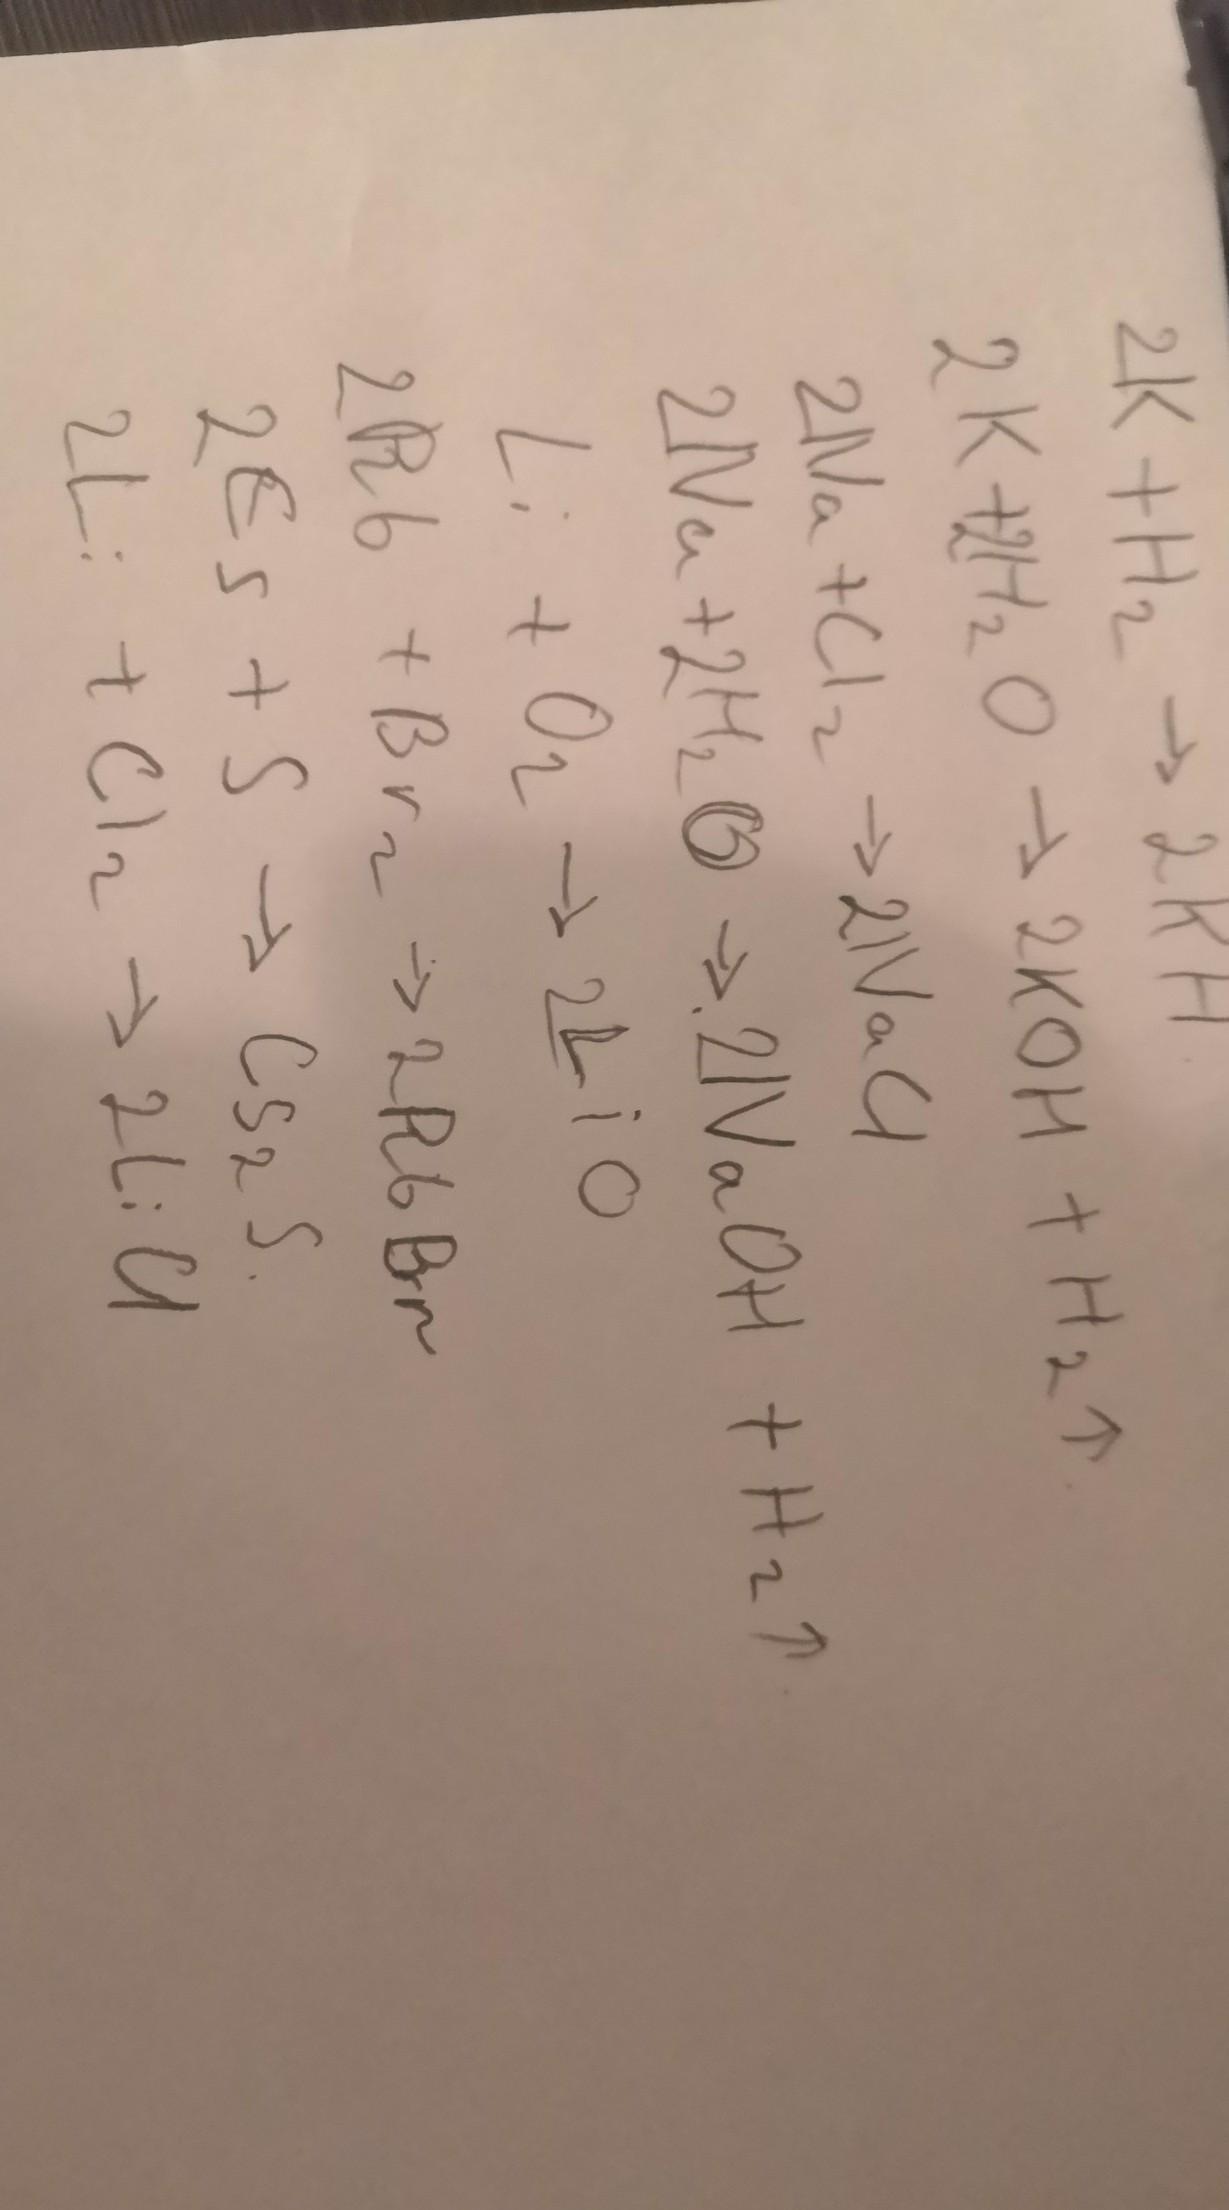 2K + H₂ → 2KH
2K + 2H₂O → 2KOH + H₂↑
2Na + Cl₂ → 2NaCl
2Na + 2H₂O → 2NaOH + H₂↑
Li + O₂ → 2LiO
2Rb + Br₂ → 2RbBr
2Cs + S → Cs₂S.
2Li + Cl₂ → 2LiCl